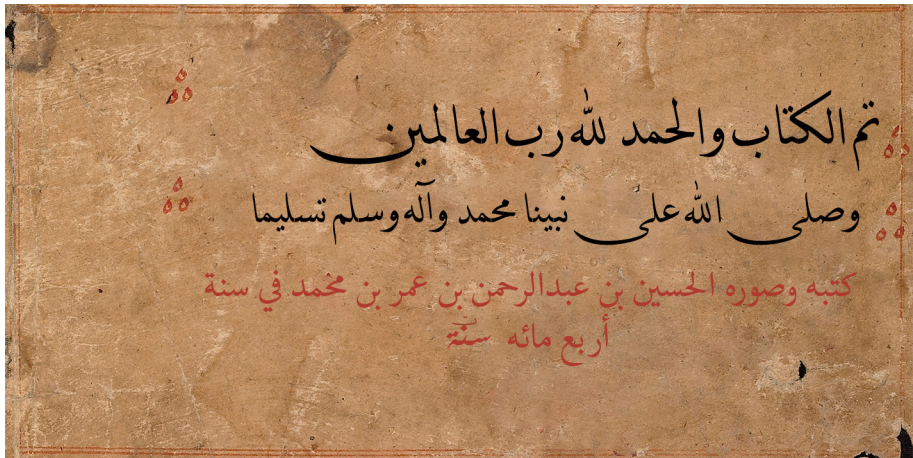 تم الكتاب والحمد لله رب العالمين
وصلى الله على نبينا محمد وآله وسلم تسليما
كتبه وصوره الحسين بن عبدالرحمن بن عمر بن محمد في سنة
أربع مائه سنة